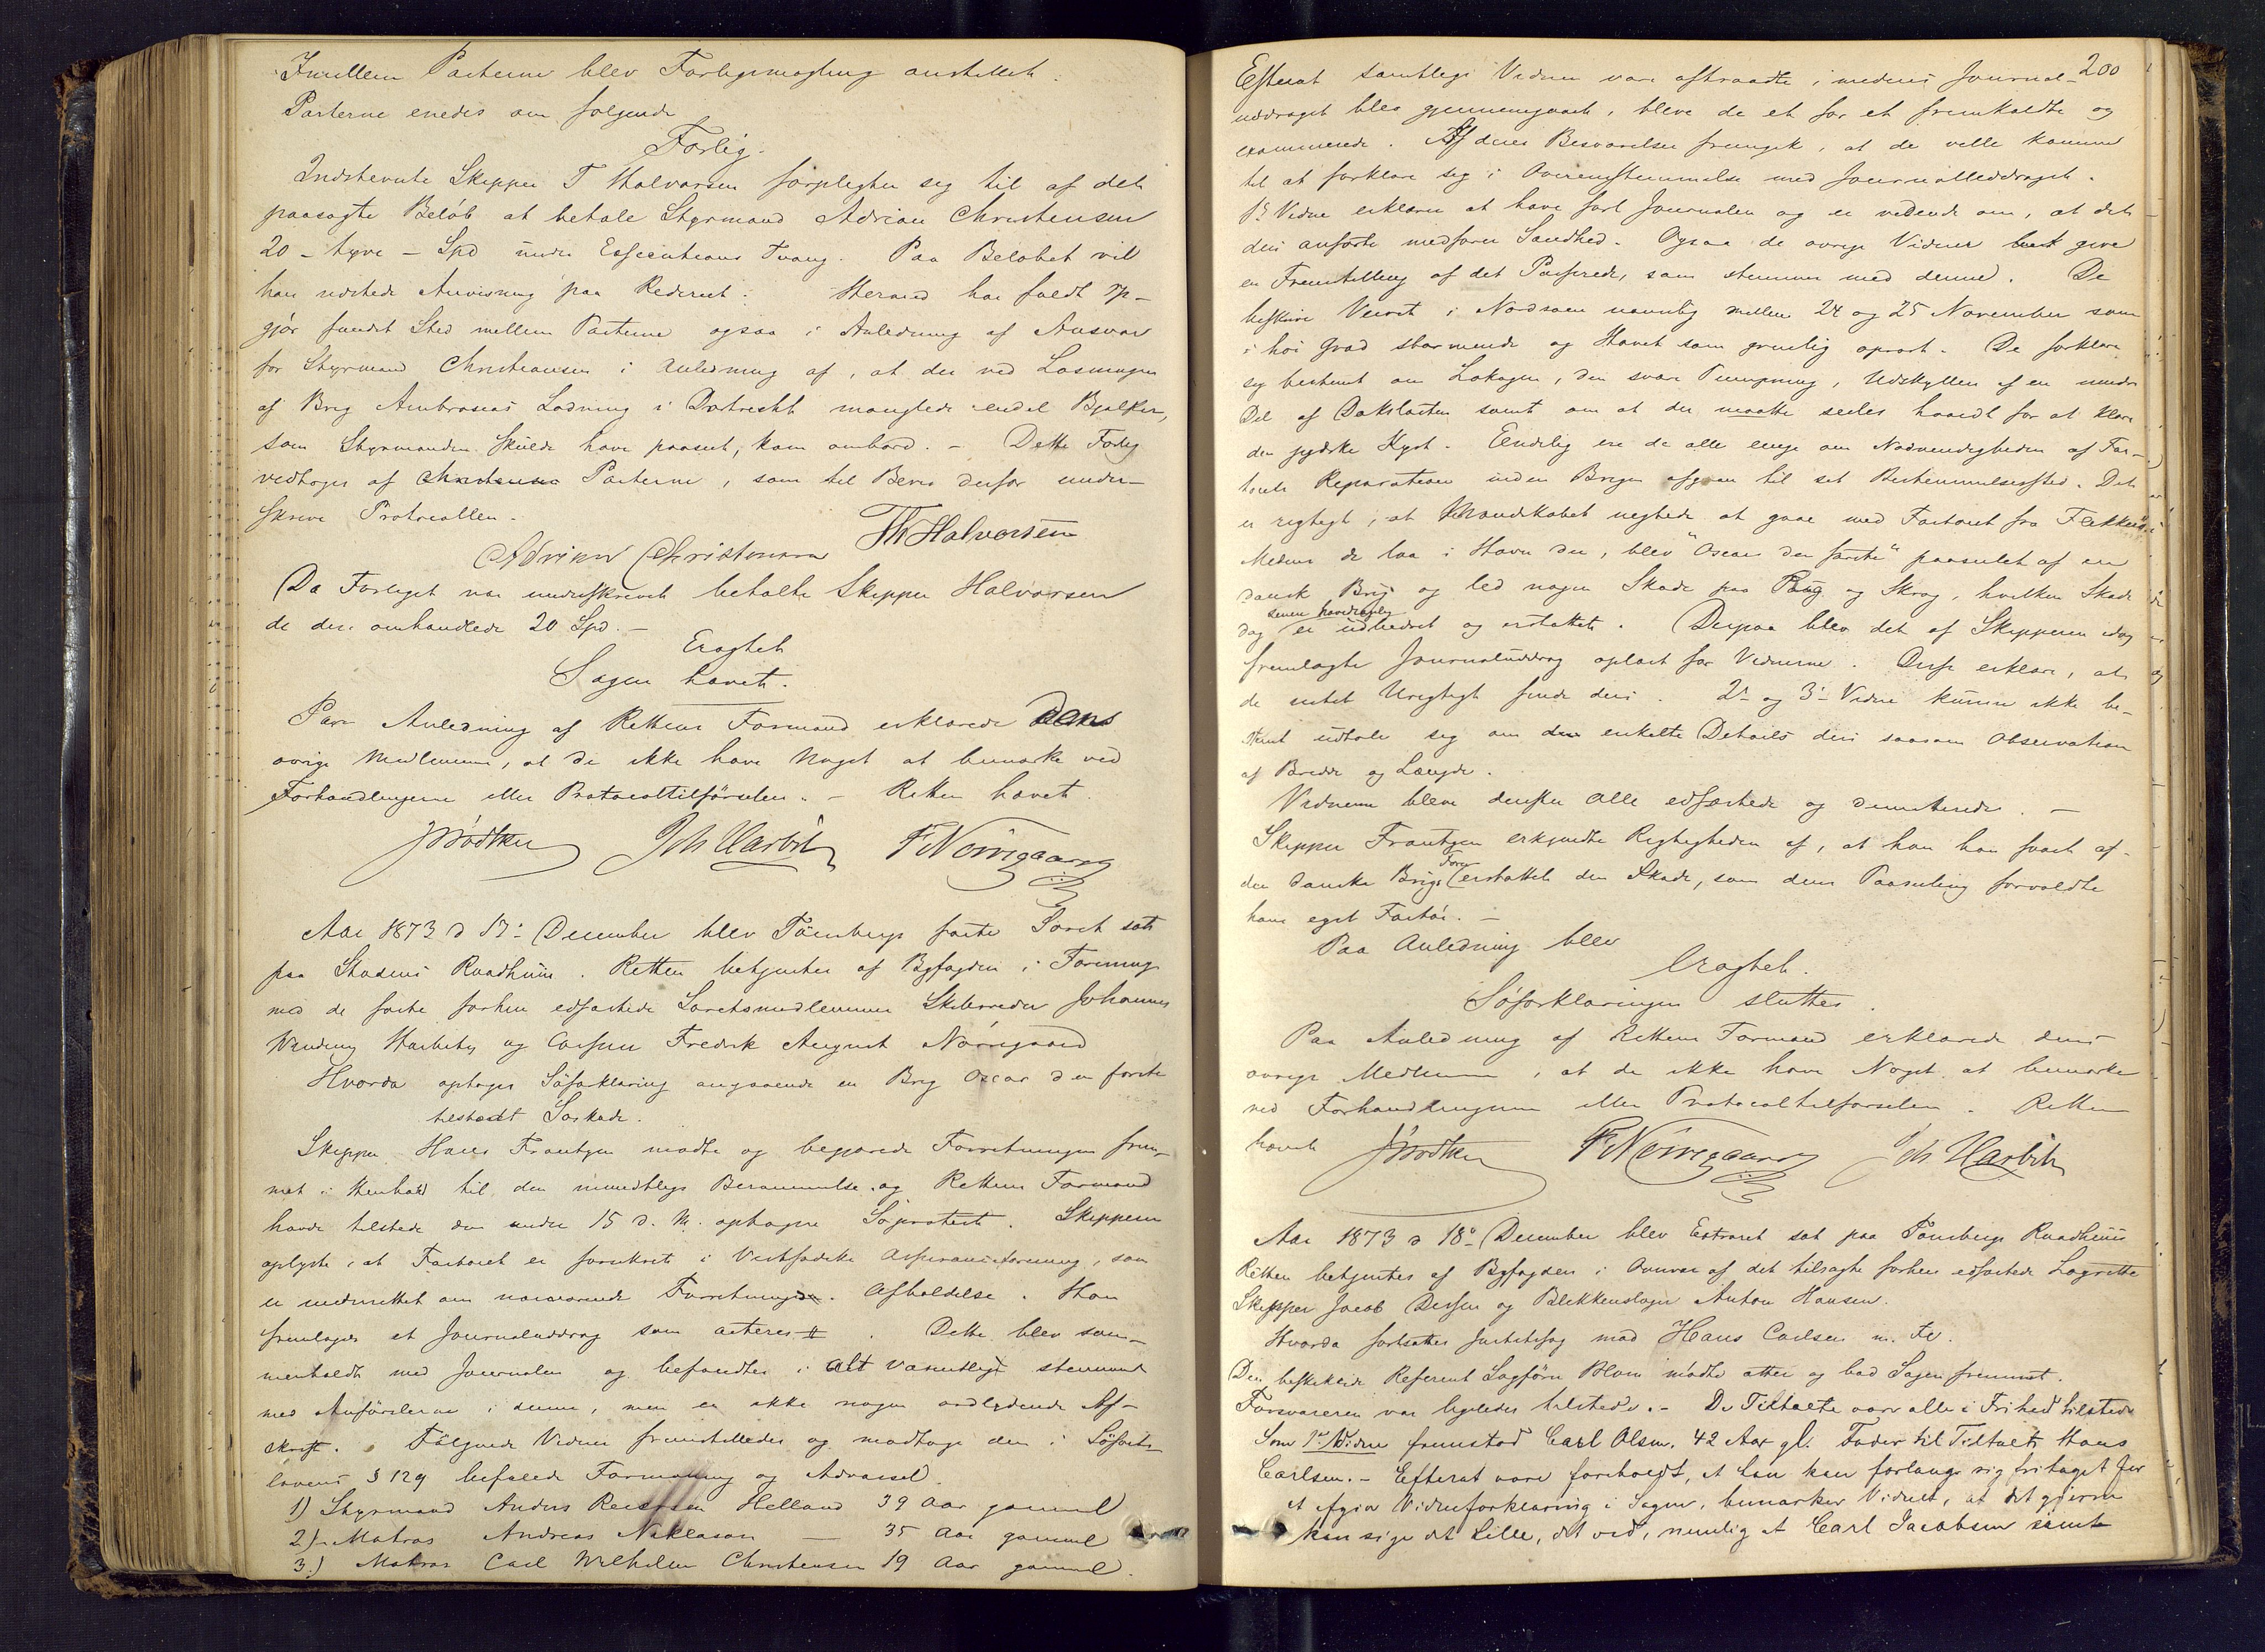 Imellem Parterne blev Forligsmægling anstillet.
Parterne enedes om følgende
Forlig.
Indstevnte Skipper T Halvorsen forpligter sig til af det
paasagte Beløb at betale Styrmand Adrian Christensen
20 - tyve - Spd under Executions Tvang. Paa Beløbet vil
han udstede Anvisning paa Rederiet. Hermed har fuldt Op-
gjør fundet Sted mellem Parterne ogsaa i Anledning af Ansvar
for Styrmand Christensen i Anledning af, at der ved Losningen
af Brig Ambrosias Ladning i Dortrecht manglede endel Bjælker,
som Styrmanden skulde have paaseet, kom ombord. - Dette Forlig
vedtages af Parterne, som til Bevis derfor under-
skreve Protocollen.
Adrian Christensen Th Halvorsen
Da Forliget var underskrevet betalte Skipper Halvorsen
de deri omhandlede 20 Spd. -
Eragtet
Sagen hævet.
Paa Anledning af Rettens Formand erklærede dens
øvrige Medlemmer, at de ikke have Noget at bemærke ved
Forhandlingerne eller Protocoltilførselen. - Retten hævet.
JBødtker Joh Harbitz F Nörregaard
Aar 1873 d 17: December blev Tønsbergs faste Søret sat
paa Stadens Raadhuus. Retten betjentes af Byfogden i Forening
med de faste forhen edfæstede Søretsmedlemmer Skibsreder Johannes
Harbitz og Fredrik August Nörregaard
Hvorda optoges Søforklaring angaaende en Brig Oscar den første
tilstødt Søskade.
Skipper Hans Frantzen mødte og begjærede Forretningen frem-
met i Henhold til den mundtlige Berammelse og Rettens Formand
havde tilstede den under 15 d. M. optagne Søprotest. Skipperen
oplyste, at Fartøiet er forsikret i Vestfoldske Assuranceforening, som
er underrettet om nærværende Forretnings Afholdelse. Han
fremlagde et Journaluddrag som acteres #. Dette blev sam-
menholdt med Journalen og befandtes i alt væsentligt stemmende
med Anførslerne i denne, men er ikke nogen ordlydende Af-
skrift. Følgende Vidner fremstilledes og modtoge den i Søfarts-
lovens § 129 befalede Formaning og Advarsel.
1) Styrmand Anders Helland 39 Aar gammel
2) Matros Andreas Niklason — 35 Aar gammel
3.) Matros Carl Wilhelm Christensen 19 Aar gammel.
200
Efterat samtlige Vidner vare aftraadte, imedens Journal-
uddraget blev gjennemgaaet, bleve de et for et fremkaldte og
examinerede. Af deres Besvarelser fremgik, at de ville komme
til at forklare sig i Overensstemmelse med Journalleddraget.
1s Vidne erklærer at have ført Journalen og er vidende om, at det
deri anførte medfører Sandhed. Ogsaa de øvrige Vidner give
en Fremstilling af det Passerede, som stemmer med denne. De
beskrive Veiret i Nordsøen navnlig mellem 24 og 25 November som
i høi Grad stormende og Havet som gruelig oprørt. De forklare
sig bestemt om Lækagen, den svære Pumpning, Udskyllen af en mindre
Del af Dækslasten samt om at der maatte seiles haardt for at klare
den jydske Kyst. Endelig ere de alle enige om Nødvendigheden af Far-
tøiets Reparation inden Brigen afgaar til sit Bestemmelsessted. Det
er rigtigt, at Mandskabet negtede at gaae med Fartøiet fra Flekkerø.
Medens de laa i Havn der, blev "Oscar den første" paaseilet af en
dansk Brig og led nogen Skade paa Rig og Skrog, hvilken Skade
dog er udbedret og erstattet. Derpaa blev det af Skipperen idag
fremlagte Journaluddrag oplæst for Vidnerne. Disse erklære, at
de intet Urigtigt finde deri. 2t og 3t Vidne kunne ikke be-
stemt udtale sig om enkelte Details deri saasom Observation
af Bredde og Længde.
Vidnerne bleve derefter alle edfæstede og dimitterede. -
Skipper Frantzen erkjendte Rigtigheden af, at han har faaet af
den danske Brigs Fører erstattet den Skade, som dens Paaseiling forvoldte
hans eget Fartøi. -
Paa Anledning blev
Eragtet.
Søforklaringen sluttes.
Paa Anledning af Rettens Formand erklærede dens
øvrige Medlemmer, at de ikke have Noget at bemærke
ved Forhandlingerne eller Protocoltilførselen. Retten
hævet JBødtker F Nörregaard Joh Harbitz
Aar 1873 d 18: December blev Extraret sat paa Tønsbergs Raadhuus
Retten betjentes af Byfogden i Overvær af det tilsagte forhen edfæstede Lagrette
Skipper Jacob og Blikkenslager Anton Hansen.
Hvorda fortsattes Justitssag mod Hans Carlsen m. Fl.
Den beskikkede Referent Sagfører Blom mødte atter og bad Sagen fremmet.
Forsvareren var ligeledes tilstede. - De Tiltalte vare alle i Frihed tilstede
Som 1ste Vidne fremstod Carl Olsen, 42 Aar gl. Fader til Tiltalte Hans
Carlsen. - Efterat være foreholdt, at han kan forlange sig fritaget for
at afgive Vidneforklaring i Sagen, bemærker Vidnet, at det gjerne
kan sige det Lille, det ved, nemlig at Carl Jacobsen samt